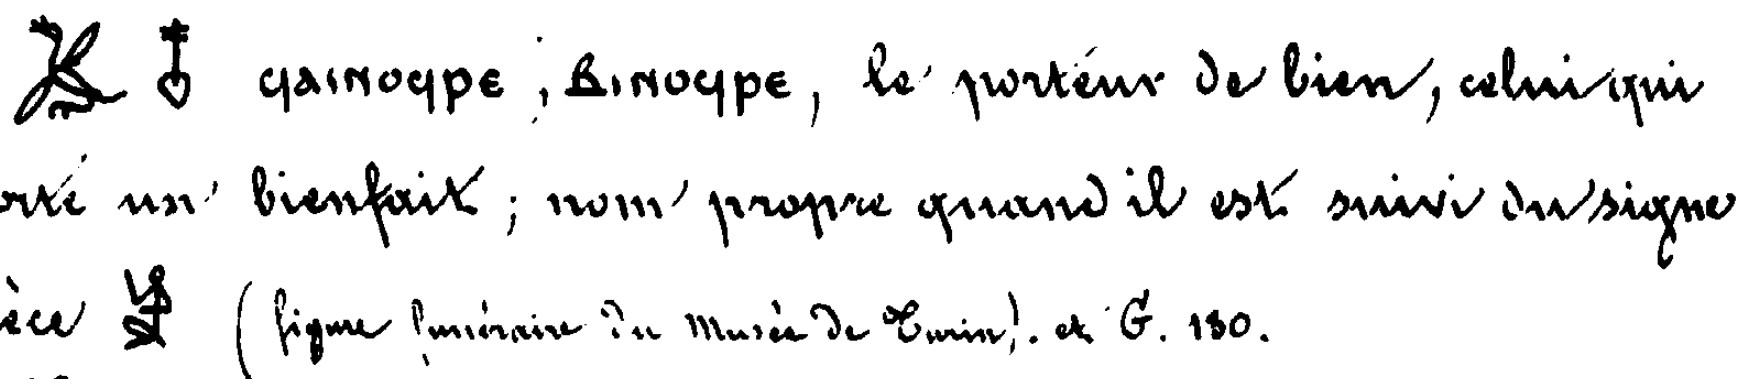 ϥⲁⲓⲛⲟϥⲣⲉ, ⲃⲓⲛⲟϥⲣⲉ, le porteur de bien, celui qui
orte un bienfait; nom propre quand il est suivi du signe
èce (figure funéraire du Musée de Turin). et G. 130.